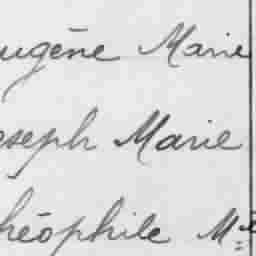 ugène Marie
oseph Marie
héophile M.ie